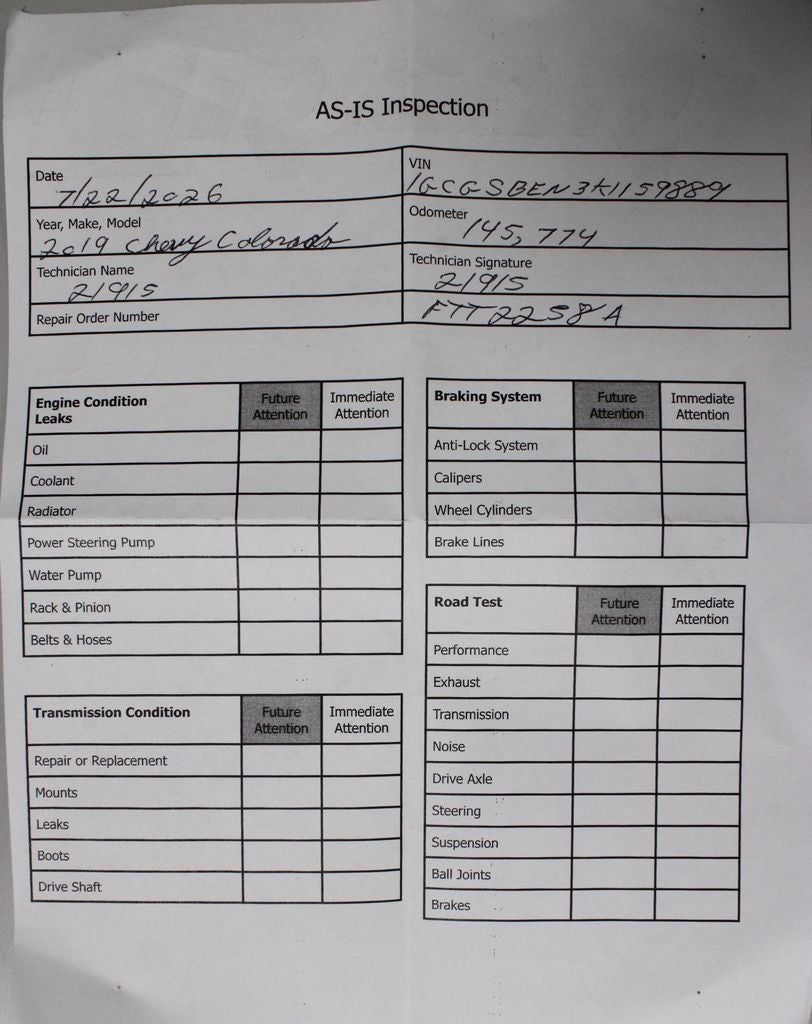 AS-IS Inspection
Date
7/22/2026
VIN
1GCGSBEN3K1159889
Year, Make, Model
2019 Chevy Colorado
Odometer
145,774
Technician Name
21915
Technician Signature
21915
Repair Order Number
FTT2258A
Engine Condition
Leaks
Future Attention
Immediate Attention
Oil
Coolant
Radiator
Power Steering Pump
Water Pump
Rack & Pinion
Belts & Hoses
Transmission Condition
Future Attention
Immediate Attention
Repair or Replacement
Mounts
Leaks
Boots
Drive Shaft
Braking System
Future Attention
Immediate Attention
Anti-Lock System
Calipers
Wheel Cylinders
Brake Lines
Road Test
Future Attention
Immediate Attention
Performance
Exhaust
Transmission
Noise
Drive Axle
Steering
Suspension
Ball Joints
Brakes